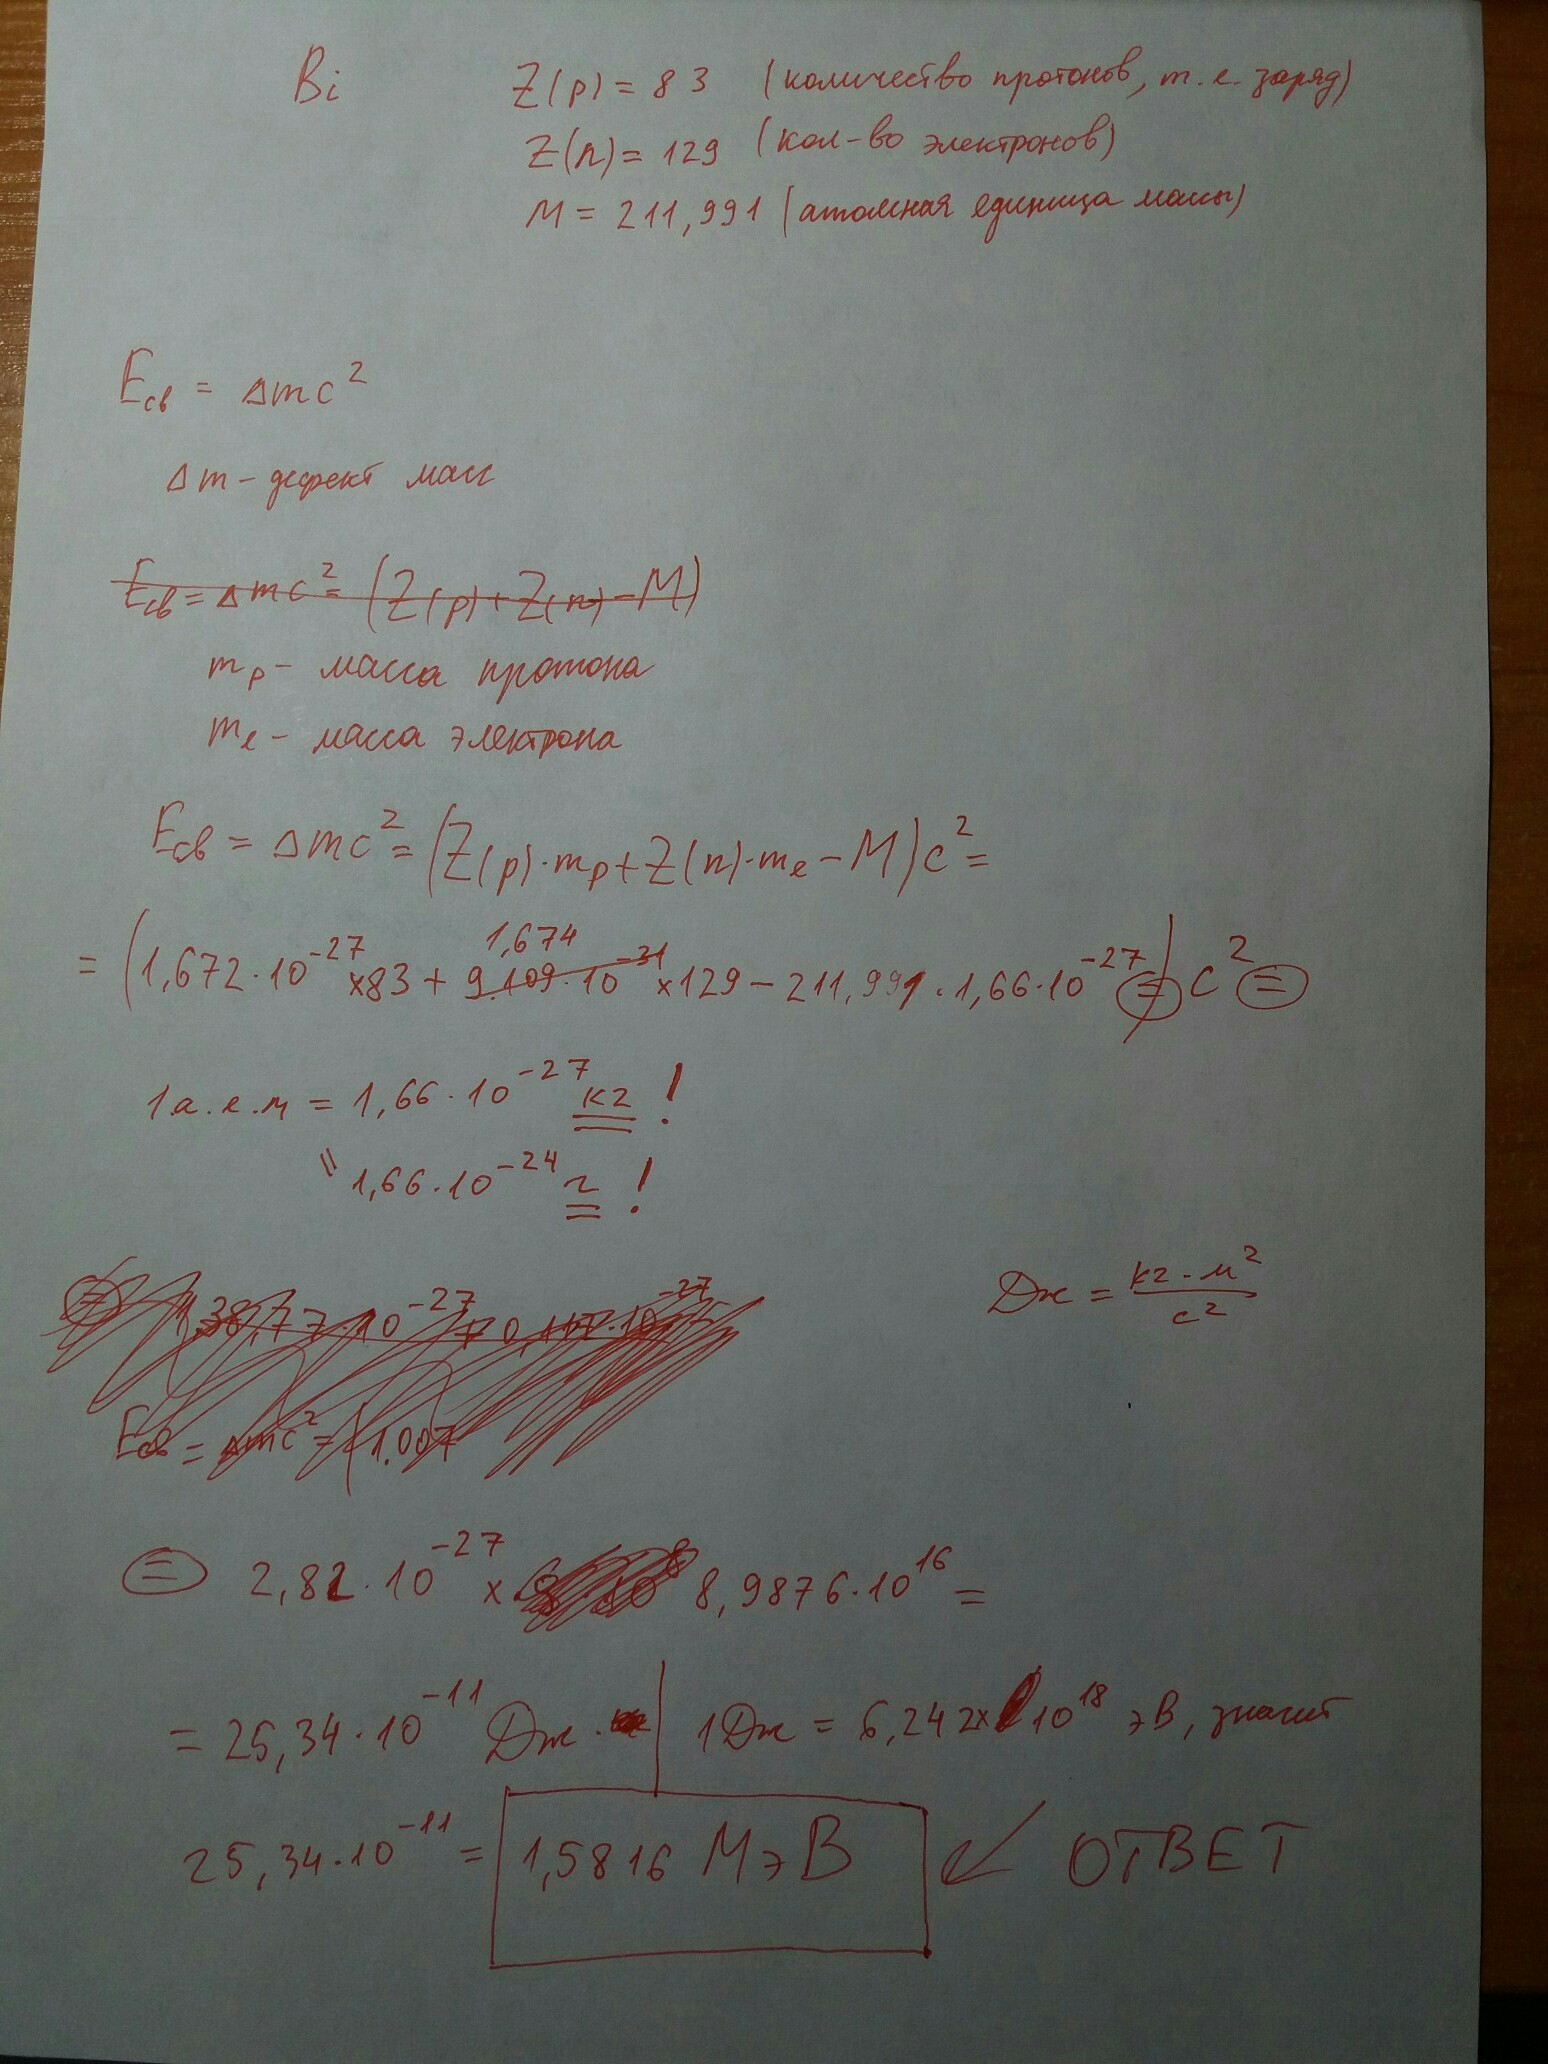 Bi Z(p) = 83 (количество протонов, т.е. заряд)
Z(n) = 129 (кол-во электронов)
M = 211,991 (атомная единица массы)
Eсв = Δmc²
Δm – дефект масс
Eсв = Δmc² = (Z(p) + Z(n) – M)
mp – масса протона
me – масса электрона
Eсв = Δmc² = (Z(p)·mp + Z(n)·me – M)c² =
1,674
= (1,672·10⁻²⁷ ×83 + 9.109·10⁻³¹ ×129 – 211,991·1,66·10⁻²⁷) c² =
1 а.е.м = 1,66·10⁻²⁷ кг !
" 1,66·10⁻²⁴ г !
Дж = кг·м²/с²
Eсв = Δmc² = (1.007
= 2,82·10⁻²⁷ × 8,9876·10¹⁶ =
= 25,34·10⁻¹¹ Дж. | 1Дж = 6,242×10¹⁸ эВ, значит
25,34·10⁻¹¹ = 1,5816 МэВ ↙ ОТВЕТ